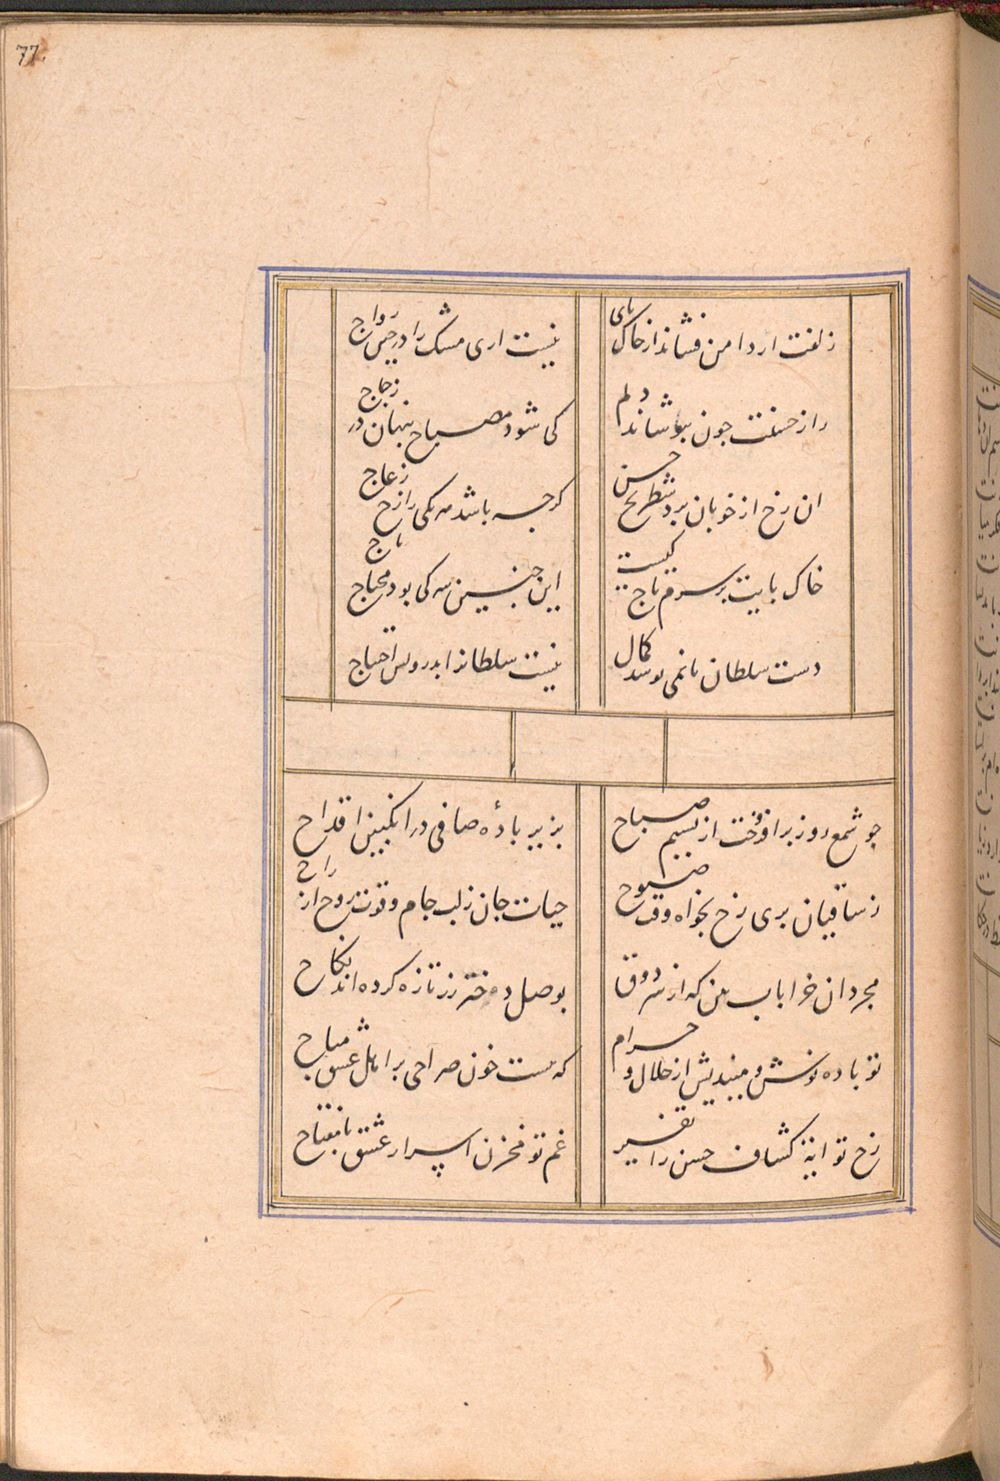 77
زلفت ار دامن فشاند از خاک پای
نیست اری مشک را در چین رواج
راز حسنت چون بپوشاند دلم
کی شود مصباح پنهان در زجاج
ان رخ از خوبان برد شطرنج حسن
کرچه باشد مه یکی رازخ زعاج
خاک پایت بر سرم تاج کیست
این چنین سر کی بود محتاج تاج
دست سلطان تا نمی بوسد کمال
نیست سلطانرا بدرویش احتیاج
چو شمع روز برافروخت از نسیم صباح
بزیر بادهٔ صافی در ابکین اقداح
ز ساقیان پری رخ بخواه وقت صبوح
حیات جان ز لب جام و قوت روح از راح
مجردان خرابات بین که از سر ذوق
بوصل دختر رز تازه کرده اند نکاح
تو باده نوش و میندیش از حلال و حرام
که هست خون صراحی بر اهل عشق مباح
رخ تو ایة کشاف حسن را تفسیر
غم تو مخزن اسرار عشق را مفتاح